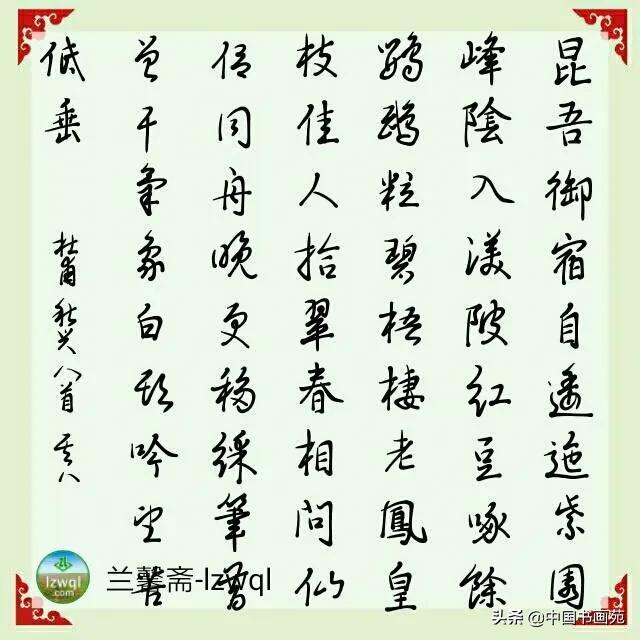 昆吾御宿自逶迤紫閣
峰陰入渼陂紅豆啄餘
鸚鵡粒碧梧棲老鳳皇
枝佳人拾翠春相問仙
侶同舟晚更移綵筆昔
曾干氣象白頭吟望苦
低垂
杜甫秋興八首 其八
lzwql
兰馨斋-lzwql
头条 @中国书画苑